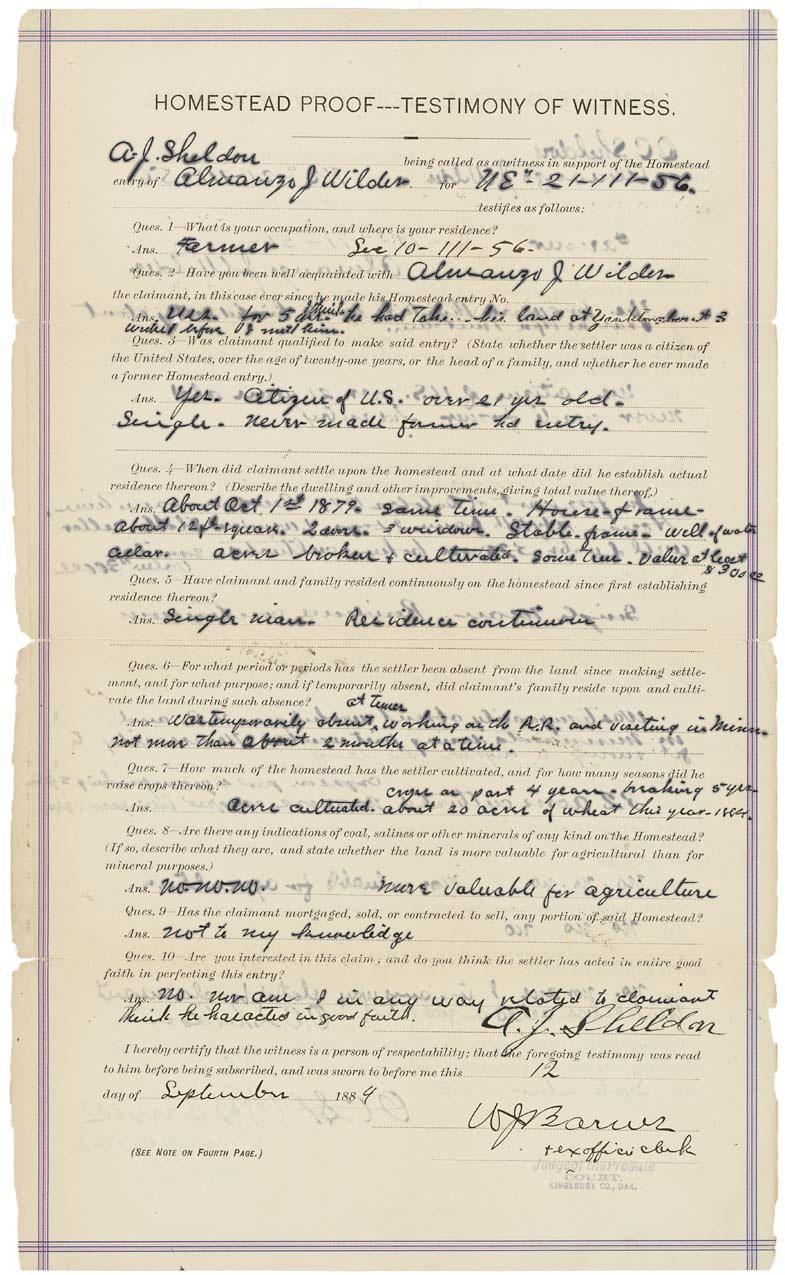 HOMESTEAD PROOF---TESTIMONY OF WITNESS.
A. J. Sheldon being called as a witness in support of the Homestead
entry of Almanzo J Wilder for NE¼ 21-111-56.
testifies as follows:
Ques. 1—What is your occupation, and where is your residence?
Ans. Farmer Sec 10-111-56.
Ques. 2—Have you been well acquainted with Almanzo J Wilder
the claimant, in this case ever since he made his Homestead entry No.
Ans. Yes. for 5 yrs. he had take his land at Yankton about 3
weeks before I met him.
Ques. 3—Was claimant qualified to make said entry? (State whether the settler was a citizen of
the United States, over the age of twenty-one years, or the head of a family, and whether he ever made
a former Homestead entry.)
Ans. Yes. Citizen of U.S. over 21 yrs old.
Single. Never made former hd entry.
Ques. 4—When did claimant settle upon the homestead and at what date did he establish actual
residence thereon? (Describe the dwelling and other improvements, giving total value thereof.)
Ans. About Oct 1st 1879. same time. House-frame-
about 12 ft square. 2 doors. 3 windows. Stable-frame- well of water
cellar. acres broken & cultivated. Some trees. Value at least
$300.00
Ques. 5—Have claimant and family resided continuously on the homestead since first establishing
residence thereon?
Ans. Single man. Residence continuous
Ques. 6—For what period or periods has the settler been absent from the land since making settle-
ment, and for what purpose; and if temporarily absent, did claimant's family reside upon and culti-
vate the land during such absence?
at times
Ans. Was temporarily absent, working on the R.R. and visiting in Minn.
not more than about 2 months at a time.
Ques. 7—How much of the homestead has the settler cultivated, and for how many seasons did he
raise crops thereon? crops on part 4 years. breaking 5 yrs.
Ans. Acres cultivated. about 20 acres of wheat this year-1884.
Ques. 8—Are there any indications of coal, salines or other minerals of any kind on the Homestead?
(If so, describe what they are, and state whether the land is more valuable for agricultural than for
mineral purposes.)
Ans. no. no. no. more valuable for agriculture
Ques. 9—Has the claimant mortgaged, sold, or contracted to sell, any portion of said Homestead?
Ans. Not to my knowledge
Ques. 10—Are you interested in this claim; and do you think the settler has acted in entire good
faith in perfecting this entry?
Ans. No. nor am I in any way related to claimant
think he has acted in good faith.
A. J. Sheldon
I hereby certify that the witness is a person of respectability; that the foregoing testimony was read
to him before being subscribed, and was sworn to before me this 12
day of September 1884
W J Barnes
+ ex officio clerk
Judge of the Probate
COURT.
KINGSBURY CO., DAK.
(SEE NOTE ON FOURTH PAGE.)